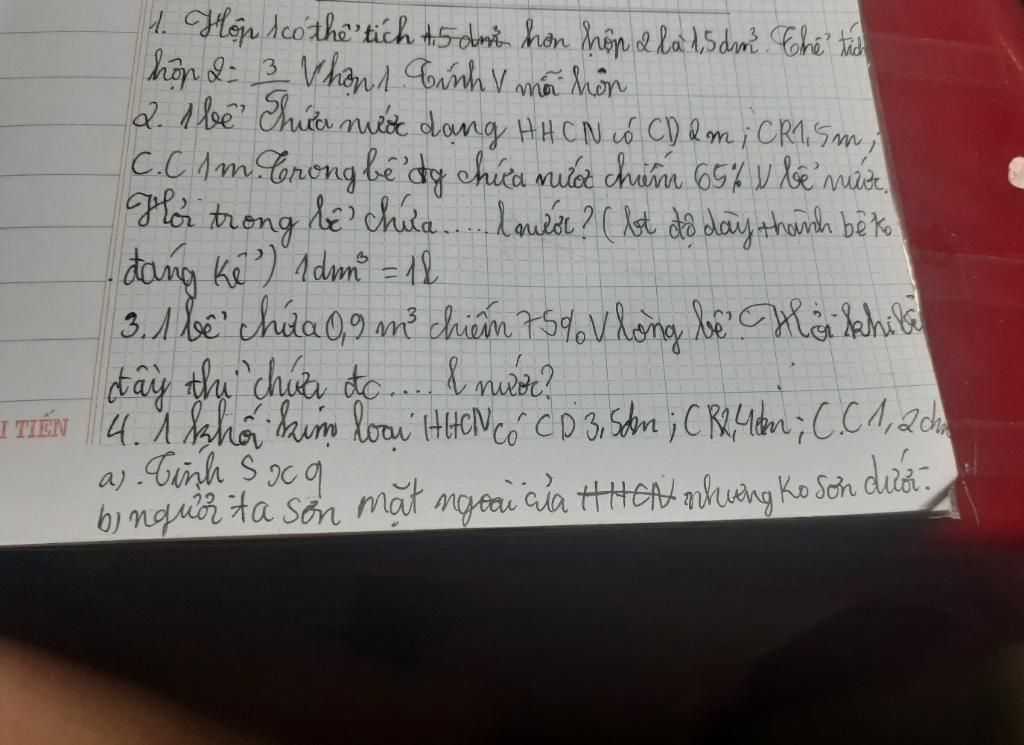 1. Hộp 1 có thể tích +5dm³ hơn hộp 2 là 1,5dm³. Thể tích
hộp 2 = 3/5 V hộp 1. Tính V mỗi hộp
2. 1 bể chứa nước dạng HHCN có CD 2m; CR 1,5m;
C.C 1m. Trong bể đg chứa nước chiếm 65% V bể nước.
Hỏi trong bể chứa.... l nước? ( độ dày thành bể ko
đáng kể) 1dm³ = 1l
3. 1 bể chứa 0,9 m³ chiếm 75% V lòng bể. Hỏi khi bể
đầy thì chứa đc.... l nước?
I TIẾN
4. 1 khối kim loại HHCN có CD 3,5dm; CR 2,4dm; C.C 1,2dm
a). Tính S xq
b) người ta sơn mặt ngoài của HHCN nhưng ko sơn dưới.